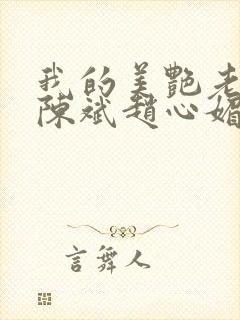 我的美艷老
陳斌趙心媚
言舞人